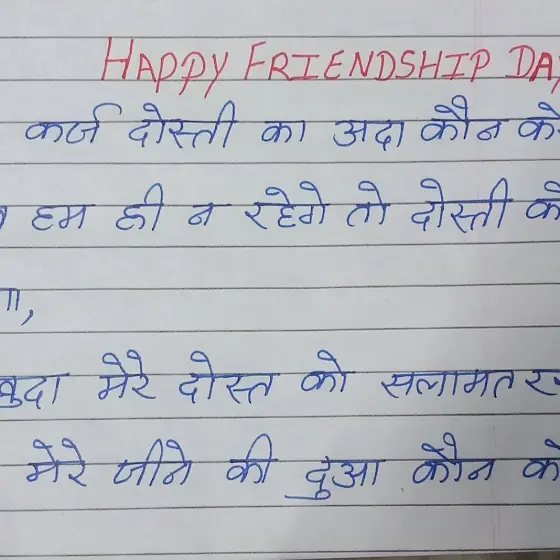 HAPPY FRIENDSHIP DA
कर्ज दोस्ती का अदा कौन क
हम ही न रहेगे तो दोस्ती क
ा,
मेरे दोस्त को सलामत र
मेरे जीने की दुआ कौन क